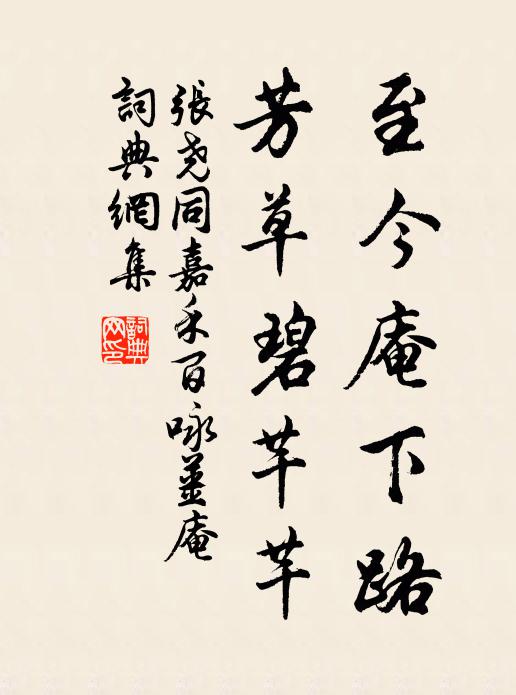 至今庵下路
芳草碧芊芊
張尧同嘉禾百咏薑庵
詞典網集
詞典
网印